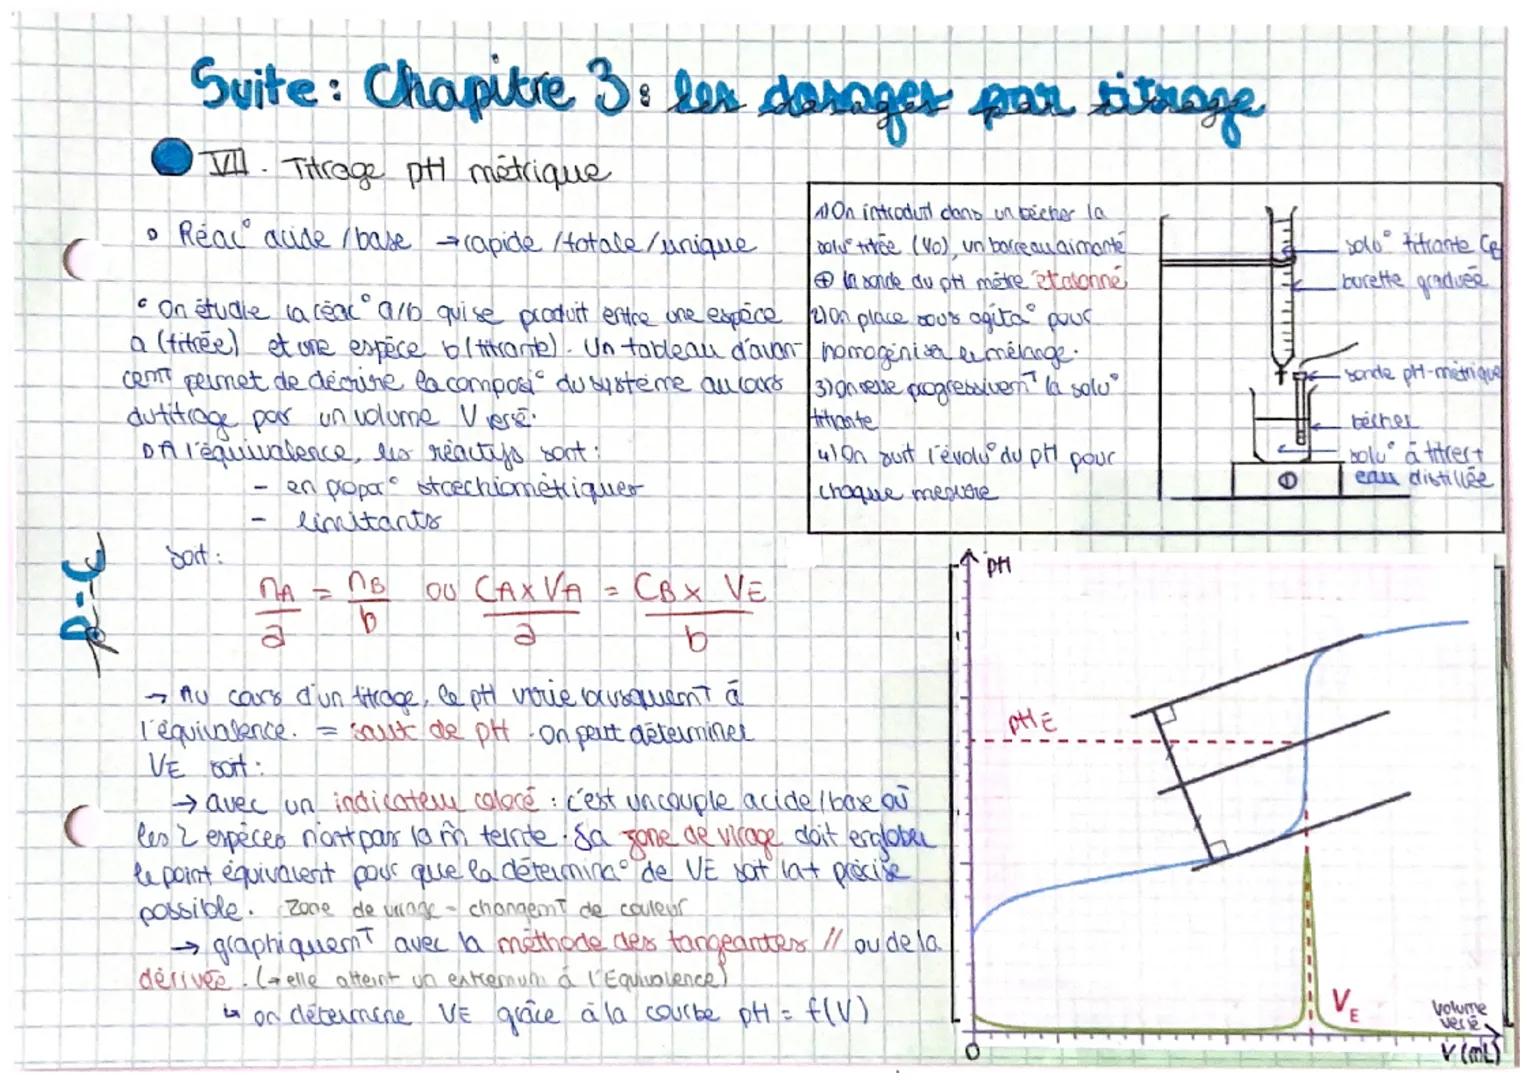 Suite : Chapitre 3 : les dosages par titrage
VII. Titrage pH métrique
Réac° acide / base → rapide / totale / unique
On étudie la réac° a/b qui se produit entre une espèce
a (titrée) et une espèce b (titrante). Un tableau d'avan-
cemT permet de décrire la composi° du système au cours
du titrage par un volume V versé.
A l'équivalence, les réactifs sont :
- en propor° stœchiométriques
- limitants
soit :
nA/a = nB/b ou CA x VA/a = CB x VE/b
P-C
→ Au cours d'un titrage, le pH varie brusquemT à
l'équivalence. = saut de pH. On peut déterminer
VE soit :
→ avec un indicateur coloré : c'est un couple acide / base où
les 2 espèces n'ont pas la m̂ teinte. Sa zone de virage doit englober
le point équivalent pour que la détermina° de VE soit la + précise
possible. Zone de virage = changemT de couleur
→ graphiquemT avec la méthode des tangeantes // ou de la
dérivée. (→ elle atteint un extremum à l'Equivalence)
↳ on détermine VE grâce à la courbe pH = f(V)
1) On introduit dans un bécher la
solu° titrée (V0), un barreau aimanté
⊕ la sonde du pH mètre étalonné
2) On place sous agita° pour
homogénisa le mélange.
3) On verse progressivemT la solu°
titrante
4) On suit l'évolu° du pH pour
chaque mesure
solu° titrante CB
burette graduée
sonde pH-métrique
bécher
solu° à titrer +
eau distillée
pH
pHE
VE
volume
versé
0
V (mL)